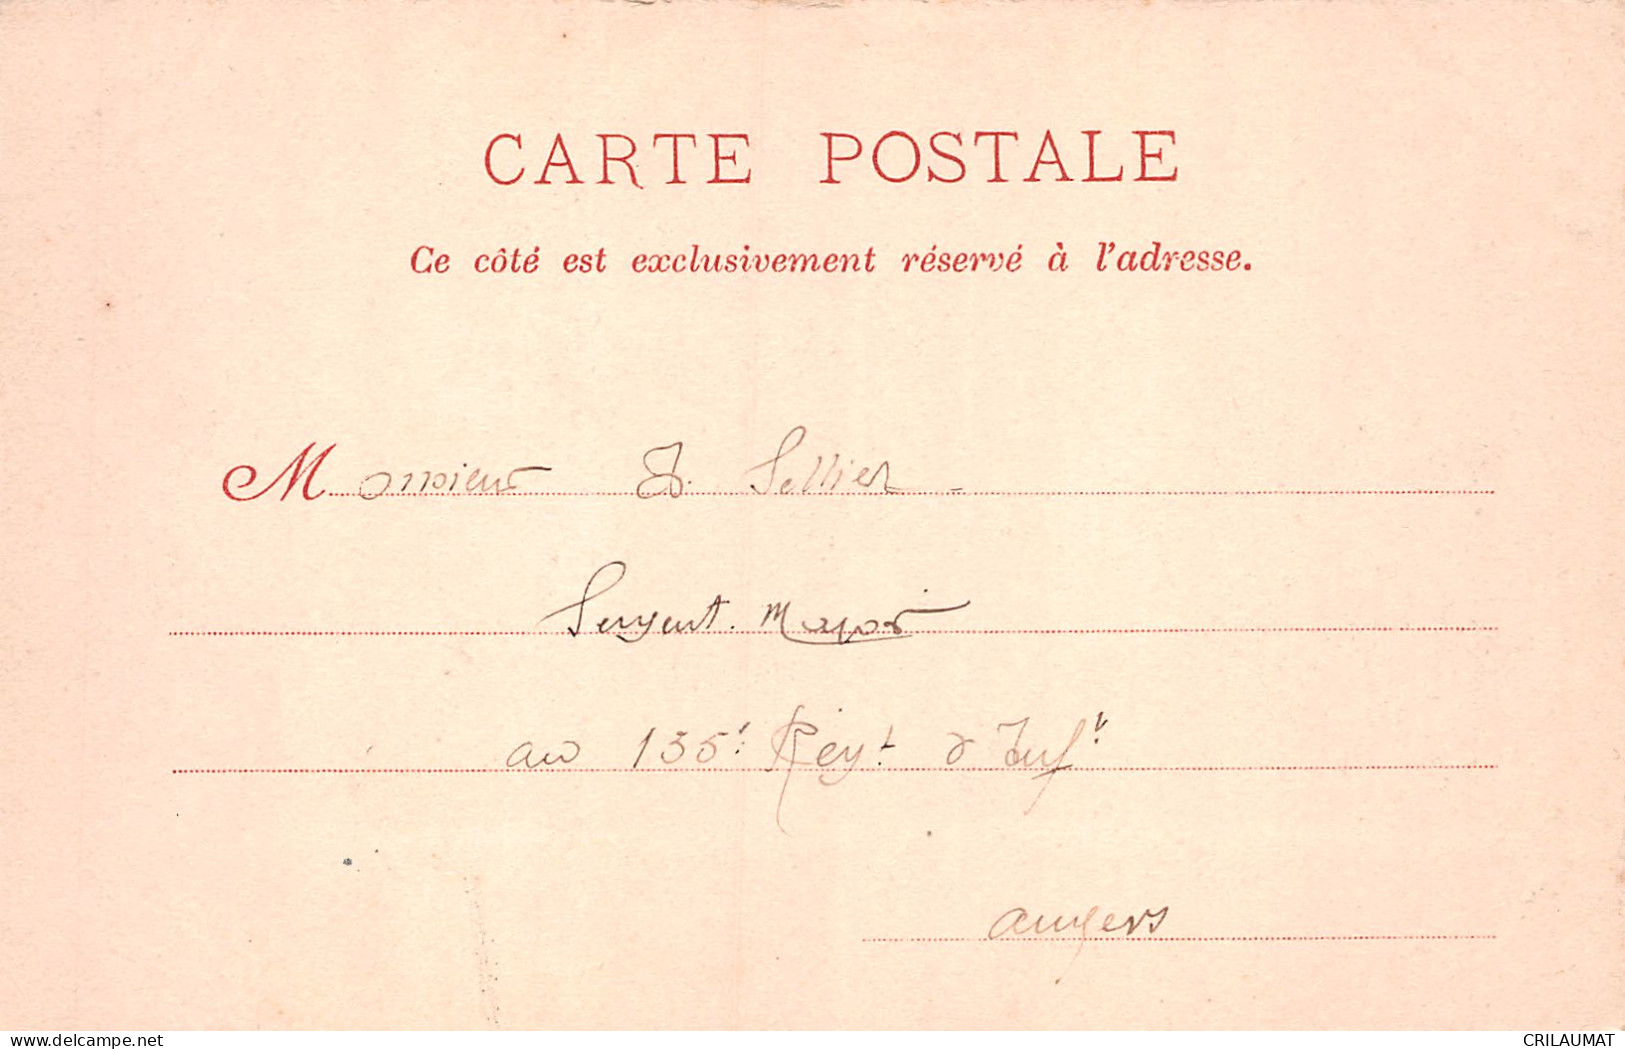 CARTE POSTALE
Ce côté est exclusivement réservé à l'adresse.
Monsieur Sellier
Sergent. Major
au 135e Regt d'Inft
Angers
delcampe.net
CRILAUMAT